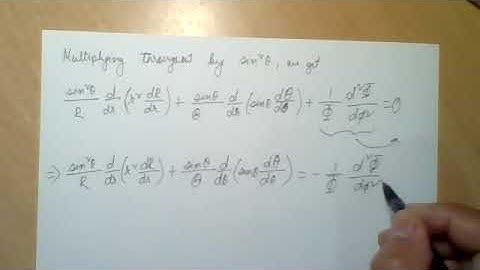 Multiplying throughout by sin²θ, we get
sin²θ/R d/dr (r² dR/dr) + sinθ/Θ d/dθ (sinθ dΘ/dθ) + 1/Φ d²Φ/dφ² = 0
⇒ sin²θ/R d/dr (r² dR/dr) + sinθ/Θ d/dθ (sinθ dΘ/dθ) = - 1/Φ d²Φ/dφ²